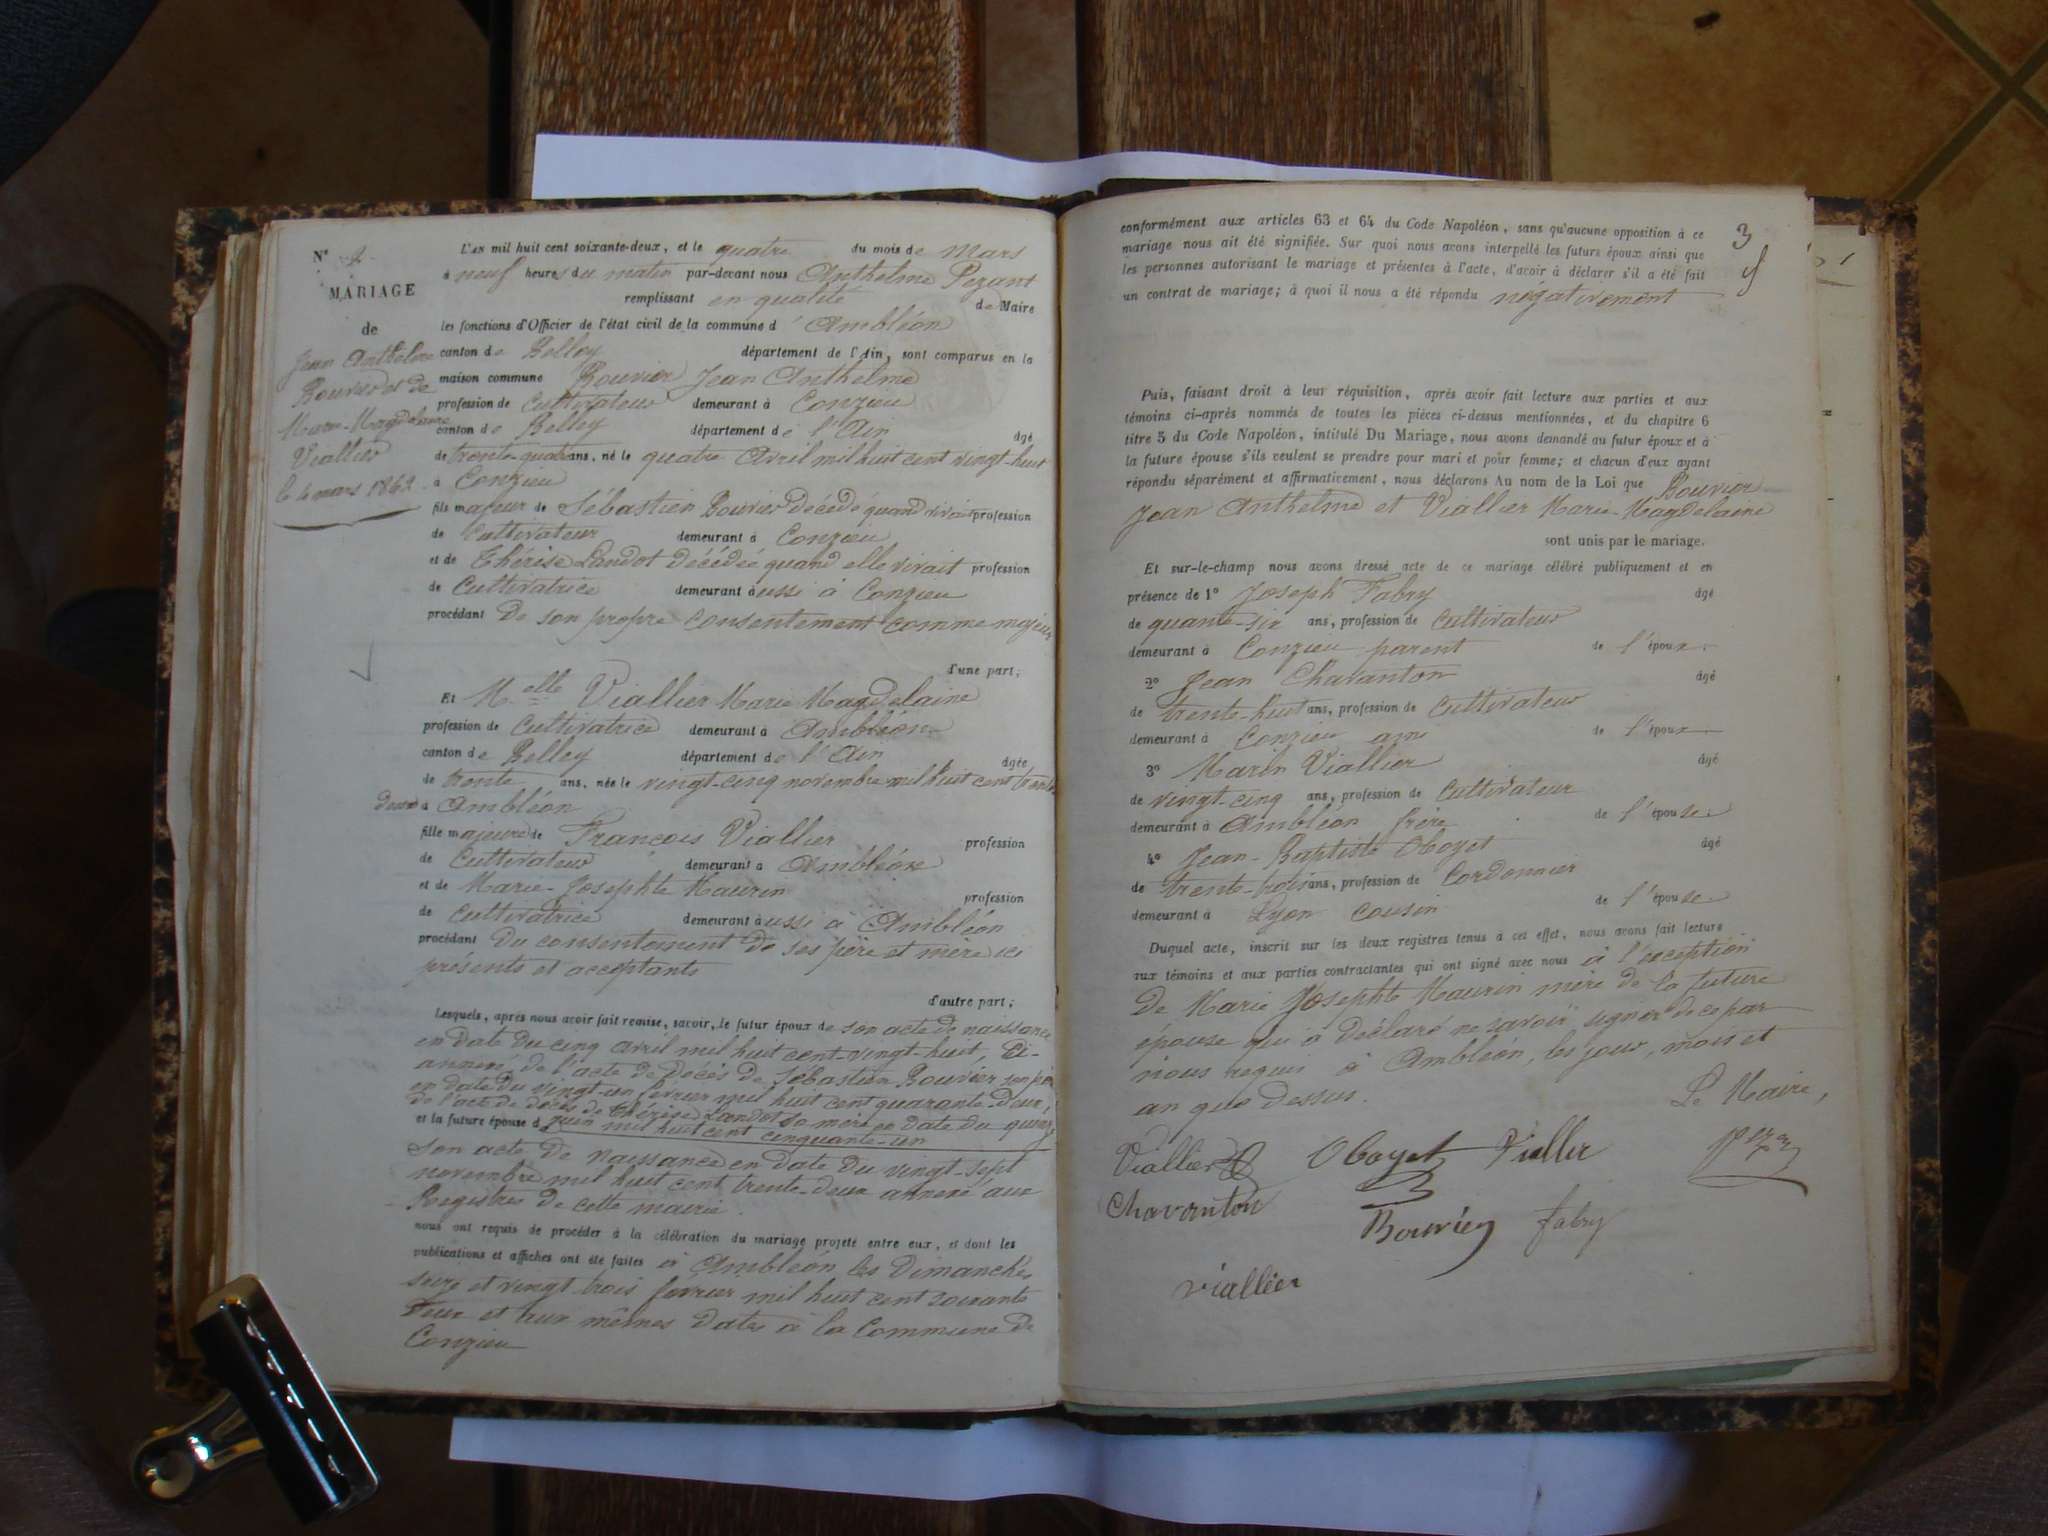 N° 2
MARIAGE
de
Jean Anthelme
Bouvier et de
Marie-Magdelaine
Viallier
le 4 mars 1862.
L'AN mil huit cent soixante-deux, et le quatre du mois de Mars
à neuf heures du matin par-devant nous Anthelme Pezant
remplissant en qualité de Maire
les fonctions d'Officier de l'état civil de la commune d'Ambléon
canton de Belley département de l'Ain, sont comparus en la
maison commune Bouvier Jean Anthelme
profession de Cultivateur demeurant à Conzieu
canton de Belley département de l'Ain âgé
de trente-quatre ans, né le quatre Avril mil huit cent vingt-huit
à Conzieu
fils majeur de Sébastien Bouvier décédé quand vivait profession
de Cultivateur demeurant à Conzieu
et de Thérèse Landot décédée quand elle vivait profession
de Cultivatrice demeurant aussi à Conzieu
procédant de son propre consentement comme majeur
d'une part;
Et Melle Viallier Marie Magdelaine
profession de Cultivatrice demeurant à Ambléon
canton de Belley département de l'Ain âgée
de trente ans, née le vingt-cinq novembre mil huit cent trente
deux à Ambléon
fille majeure de François Viallier profession
de Cultivateur demeurant à Ambléon
et de Marie-Josephte Maurin profession
de Cultivatrice demeurant aussi à Ambléon
procédant du consentement de ses père et mère ici
présents et acceptants
d'autre part;
Lesquels, après nous avoir fait remise, savoir, le futur époux de son acte de naissance
en date du cinq avril mil huit cent-vingt-huit, Ci-
annexé, de l'acte de décès de Sébastien Bouvier son père
en date du vingt-un fevrier mil huit cent quarante-deux,
de l'acte de décès de thérèse Landot sa mère en date du quinze
et la future épouse d juin mil huit cent cinquante-un
son acte de naissance en date du vingt-sept
novembre mil huit cent trente-deux annexé aux
Registres de cette mairie.
nous ont requis de procéder à la célébration du mariage projeté entre eux, et dont les
publications et affiches ont été faites à Ambléon les Dimanches
seize et vingt trois février mil huit cent soixante
deux et aux mêmes dates à la Commune de
Conzieu
3
conformément aux articles 63 et 64 du Code Napoléon, sans qu'aucune opposition à ce
mariage nous ait été signifiée. Sur quoi nous avons interpellé les futurs époux ainsi que
les personnes autorisant le mariage et présentes à l'acte, d'avoir à déclarer s'il a été fait
un contrat de mariage; à quoi il nous a été répondu négativement
Puis, faisant droit à leur réquisition, après avoir fait lecture aux parties et aux
témoins ci-après nommés de toutes les pièces ci-dessus mentionnées, et du chapitre 6
titre 5 du Code Napoléon, intitulé Du Mariage, nous avons demandé au futur époux et à
la future épouse s'ils veulent se prendre pour mari et pour femme; et chacun d'eux ayant
répondu séparément et affirmativement, nous déclarons Au nom de la Loi que Bouvier
Jean Anthelme et Viallier Marie-Magdelaine
sont unis par le mariage.
Et sur-le-champ nous avons dressé acte de ce mariage célébré publiquement et en
présence de 1° Joseph Fabry âgé
de quante-six ans, profession de Cultivateur
demeurant à Conzieu parent de l'époux.
2° Jean Chavanton âgé
de trente-huit ans, profession de Cultivateur
demeurant à Conzieu ami de l'époux
3° Marin Viallier âgé
de vingt-cinq ans, profession de Cultivateur
demeurant à Ambléon frère de l'épouse
4° Jean-Baptiste Oboyet âgé
de trente-trois ans, profession de Cordonnier
demeurant à Lyon cousin de l'épouse
Duquel acte, inscrit sur les deux registres tenus à cet effet, nous avons fait lecture
aux témoins et aux parties contractantes qui ont signé avec nous à l'exception
de Marie Josephte Maurin mère de la future
épouse qui a déclaré ne savoir signer de ce par
nous requis à Ambléon, les jour, mois et
an que dessus.
Le Maire,
Viallier Oboyet Viallier
Chavanton Bouvier fabry
viallier